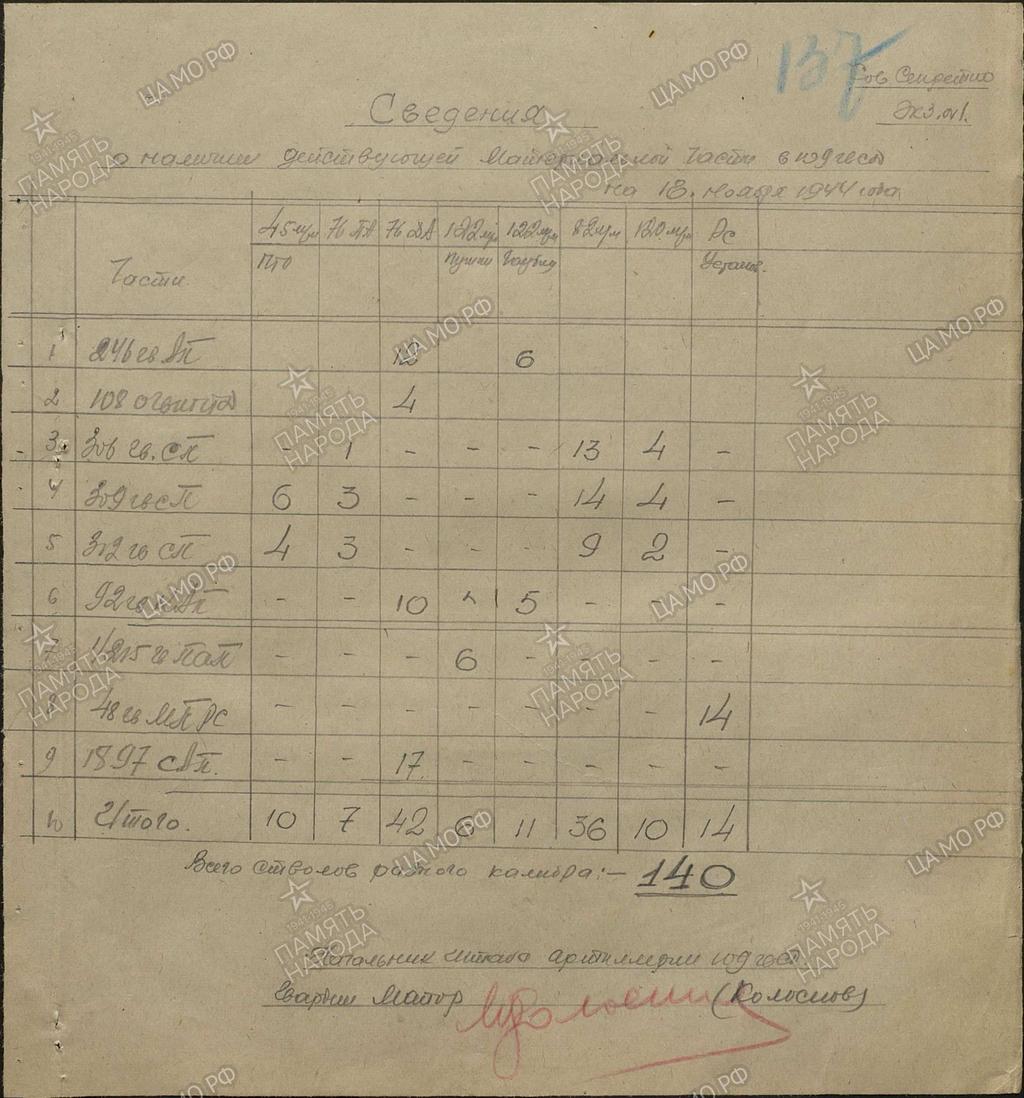 137
Сов Секретно
Экз. №1.
Сведения
о наличии действующей Материальной Части в 109 гв сд
на 18. ноября 1944 года
Части 45 мм ПТО 76 ПА 76 ДА 122 мм Пушки 122 мм Гаубиц 82 мм 120 мм РС Установ.
1 246 гв АП 12 6
2 108 4
3 306 гв. СП - 1 - - - 13 4 -
4 309 гв СП 6 3 - - - 14 4 -
5 312 гв СП 4 3 - - - 9 2 -
6 92 гв АП - - 10 5 - - -
7 1215 гв ПАП - - - 6 - - - -
8 48 гв МП РС - - - - - - - 14
9 1897 САП. - - 17. - - - - -
10 Итого. 10 7 42 6 11 36 10 14
Всего стволов разного калибра:- 140
Начальник Штаба артиллерии 109 гв сд
Гвардии Майор (Колосков)
ПАМЯТЬ НАРОДА
1941-1945
ЦАМО РФ